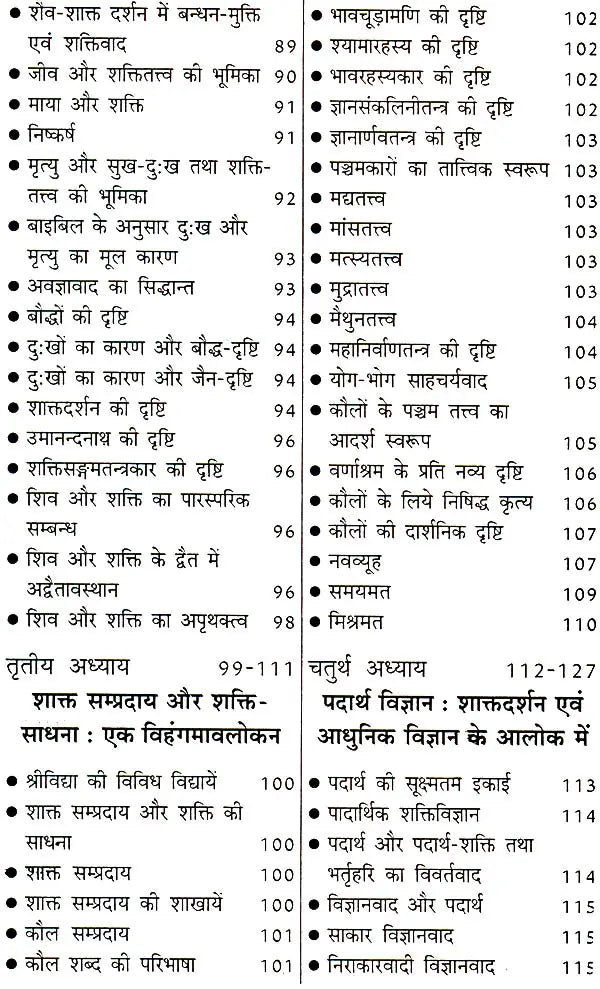 ● शैव-शाक्त दर्शन में बन्धन-मुक्ति
एवं शक्तिवाद 89
● जीव और शक्तितत्त्व की भूमिका 90
● माया और शक्ति 91
● निष्कर्ष 91
● मृत्यु और सुख-दुःख तथा शक्ति-
तत्त्व की भूमिका 92
● बाइबिल के अनुसार दुःख और
मृत्यु का मूल कारण 93
● अवज्ञावाद का सिद्धान्त 93
● बौद्धों की दृष्टि 94
● दुःखों का कारण और बौद्ध-दृष्टि 94
● दुःखों का कारण और जैन-दृष्टि 94
● शाक्तदर्शन की दृष्टि 94
● उमानन्दनाथ की दृष्टि 96
● शक्तिसङ्गमतन्त्रकार की दृष्टि 96
● शिव और शक्ति का पारस्परिक
सम्बन्ध 96
● शिव और शक्ति के द्वैत में
अद्वैतावस्थान 96
● शिव और शक्ति का अपृथक्त्व 98
तृतीय अध्याय 99-111
शाक्त सम्प्रदाय और शक्ति-
साधना : एक विहंगमावलोकन
● श्रीविद्या की विविध विद्यायें 100
● शाक्त सम्प्रदाय और शक्ति की
साधना 100
● शाक्त सम्प्रदाय 100
● शाक्त सम्प्रदाय की शाखायें 100
● कौल सम्प्रदाय 101
● कौल शब्द की परिभाषा 101
● भावचूड़ामणि की दृष्टि 102
● श्यामारहस्य की दृष्टि 102
● भावरहस्यकार की दृष्टि 102
● ज्ञानसंकलिनीतन्त्र की दृष्टि 102
● ज्ञानार्णवतन्त्र की दृष्टि 103
● पञ्चमकारों का तात्त्विक स्वरूप 103
● मद्यतत्त्व 103
● मांसतत्त्व 103
● मत्स्यतत्त्व 103
● मुद्रातत्त्व 103
● मैथुनतत्त्व 104
● महानिर्वाणतन्त्र की दृष्टि 104
● योग-भोग साहचर्यवाद 105
● कौलों के पञ्चम तत्त्व का
आदर्श स्वरूप 105
● वर्णाश्रम के प्रति नव्य दृष्टि 106
● कौलों के लिये निषिद्ध कृत्य 106
● कौलों की दार्शनिक दृष्टि 107
● नवव्यूह 107
● समयमत 109
● मिश्रमत 110
चतुर्थ अध्याय 112-127
पदार्थ विज्ञान : शाक्तदर्शन एवं
आधुनिक विज्ञान के आलोक में
● पदार्थ की सूक्ष्मतम इकाई 113
● पादार्थिक शक्तिविज्ञान 114
● पदार्थ और पदार्थ-शक्ति तथा
भर्तृहरि का विवर्तवाद 114
● विज्ञानवाद और पदार्थ 115
● साकार विज्ञानवाद 115
● निराकारवादी विज्ञानवाद 115